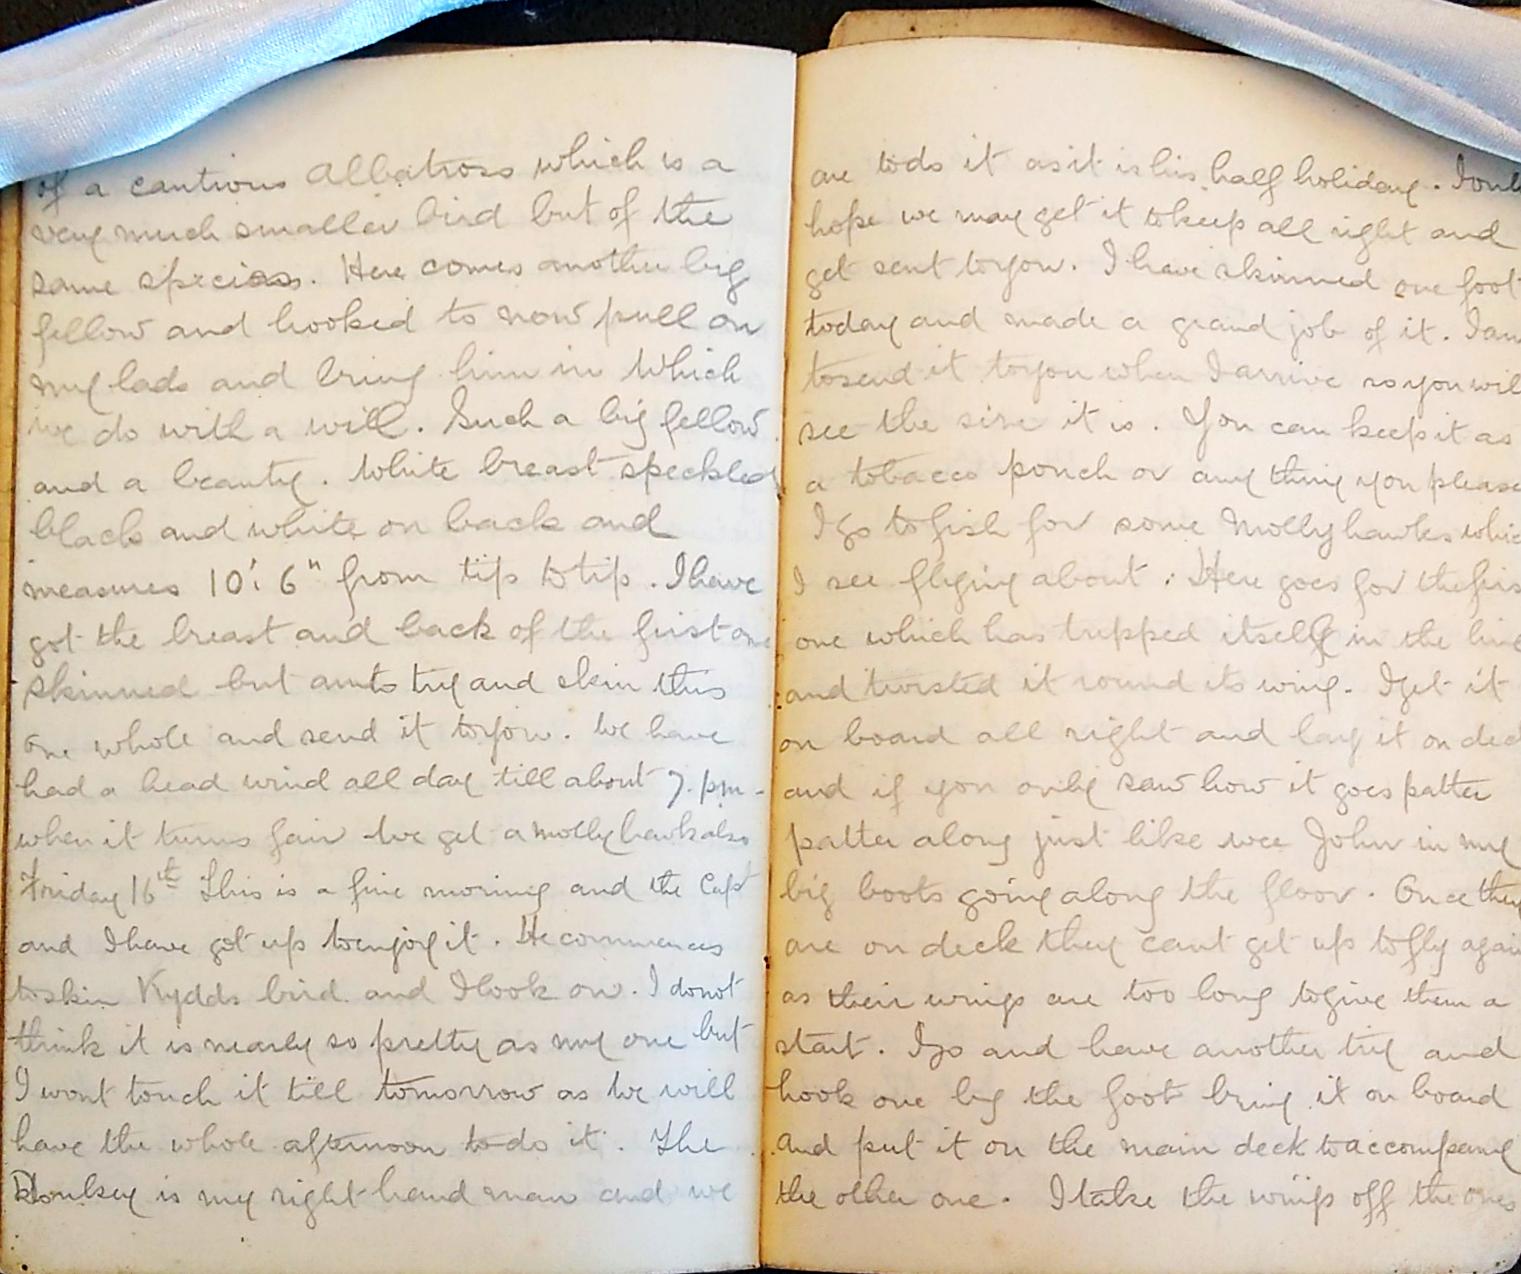 of a cautious Albatross which is a
very much smaller bird but of the
same species. Here comes another big
fellow and hooked to now pull on
my lads and bring him in which
we do with a will. Such a big fellow
and a beauty. White breast speckled
black and white on back and
measures 10' 6" from tip to tip. I have
got the breast and back of the first one
skinned but am to try and skin this
one whole and send it to you. We have
had a head wind all day till about 7. pm -
when it turns fair. We get a molly hawk also
Friday 16th This is a fine morning and the Capt
and I have got up to enjoy it. He commences
to skin Kydds bird and I look on. I do not
think it is nearly so pretty as my one but
I wont touch it till tomorrow as we will
have the whole afternoon to do it. The
Donkey is my right hand man and we
are to do it as it is his half holiday. I only
hope we may get it to keep all right and
get sent to you. I have skinned one foot
today and made a grand job of it. I am
to send it to you when I arrive so you will
see the size it is. You can keep it as
a tobacco pouch or any thing you please
I go to fish for some Molly hawks which
I see flying about. Here goes for the first
one which has trapped itself in the line
and twisted it round its wing. I get it
on board all right and lay it on deck
and if you only saw how it goes patter
patter along just like wee John in my
big boots going along the floor. Once they
are on deck they cant get up to fly again
as their wings are too long to give them a
start. I go and have another try and
hook one by the foot bring it on board
and put it on the main deck to accompany
the other one. I take the wings off the ones